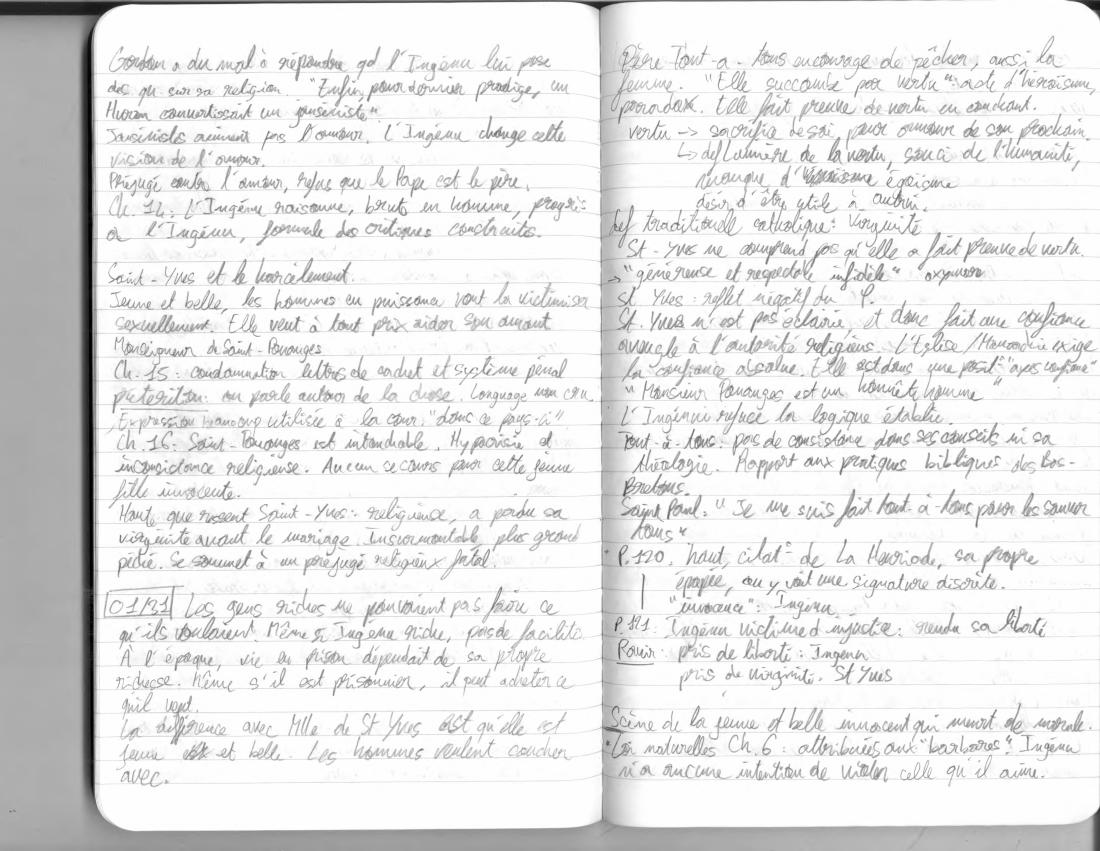 Gordon a du mal à répondre qd l'Ingénu lui pose
des qu sur sa religion. "Enfin, pour dernier prodige, un
Huron convertissait un janséniste"
Jansénistes aiment pas l'amour. L'Ingénu change cette
vision de l'amour.
Préjugé contre l'amour, refus que le Pape est le père.
Ch. 14: L'Ingénu raisonne, brute en homme, progrès
a l'Ingénu, formule des critiques construits.
Saint-Yves et le harcèlement.
Jeune et belle, les hommes en puissance vont la victimiser
sexuellement. Elle veut à tout prix aider son amant
Monseigneur de Saint-Pouanges
Ch. 15: condamnation lettres de cachet et système pénal
préterition: on parle autour de la chose. Language non cru
Expression beaucoup utilisée à la cour: "dans ce pays-ci"
Ch. 16: Saint-Pouanges est intouchable. Hypocrisie et
inconsistance religieuse. Aucun secours pour cette jeune
fille innocente.
Honte que ressent Saint-Yves: religieuse, a perdu sa
virginité avant le mariage. Insurmontable, plus grand
péché. Se soumet à un préjugé religieux fatal.
01/31 Les gens riches ne pouvaient pas faire ce
qu'ils voulaient Même si Ingénu riche, pas de facilité
À l'époque, vie en prison dépendait de sa propre
richesse. Même s'il est prisonnier, il peut acheter ce
qu'il veut.
La différence avec Mlle de St Yves est qu'elle est
jeune et belle. Les hommes veulent coucher
avec.
Père Tout-à-tous encourage de pêcher, aussi la
femme. "Elle succombe par vertu": acte d'héroïsme,
paradoxe. Elle fait preuve de vertu en couchant.
vertu → sacrifice de soi, pour amour de son prochain
↳ def Lumière de la vertu, souci de l'humanité,
manque d' égoïsme
désir d'être utile à autrui.
def traditionelle catholique: virginité
St-Yves ne comprend pas qu'elle a fait preuve de vertu.
→ "généreuse et respectable infidèle" oxymoron
St Yves: reflet négatif du P.
St. Yves n'est pas éclairée, et donc fait une confiance
aveugle à l'autorité religieuse. L'Eglise/Monarchie exige
la confiance absolue. Elle est dans une posit°
"Monsieur Pouanges est un honnête homme"
L'Ingénu refuse la logique établie.
Tout-à-tous: pas de consistance dans ses conseils ni sa
théologie. Rapport aux pratiques bibliques des Bas-
Bretons.
Saint Paul: "Je me suis fait tout-à-tous pour les sauver
tous"
P.120. haut, citat° de La Henriade, sa propre
épopée, on y voit une signature discrète.
"innocence": Ingénu
P.121: Ingénu victime d'injustice: rendu sa liberté
pris de liberté: Ingénu
pris de virginité. St Yves
Scène de la jeune et belle innocent qui meurt de morale.
Loi naturelles Ch. 6: attribuées aux "barbares". Ingénu
n'a aucune intention de violer celle qu'il aime.